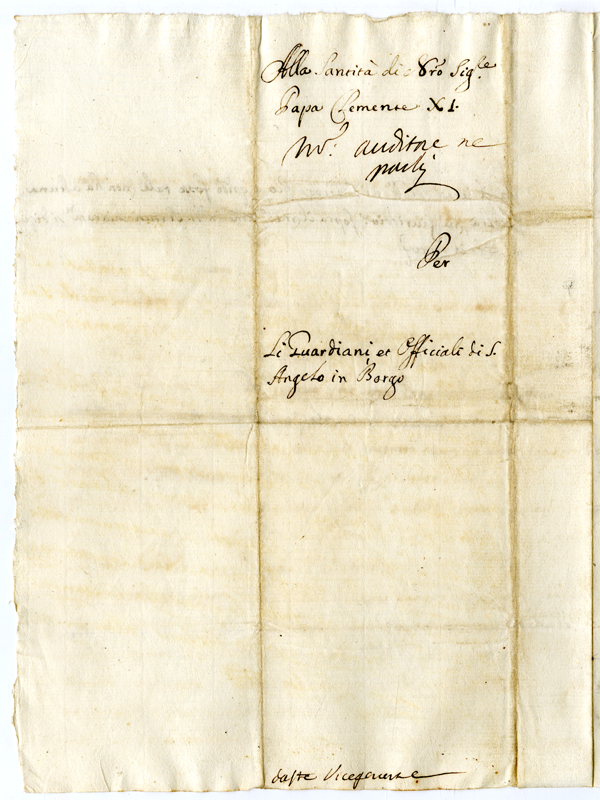 Alla Santità di Nro Sig.re
Papa Clemente XI.
auditore ne
parli
Per
Li Guardiani et Officiali di S.
Angelo in Borgo